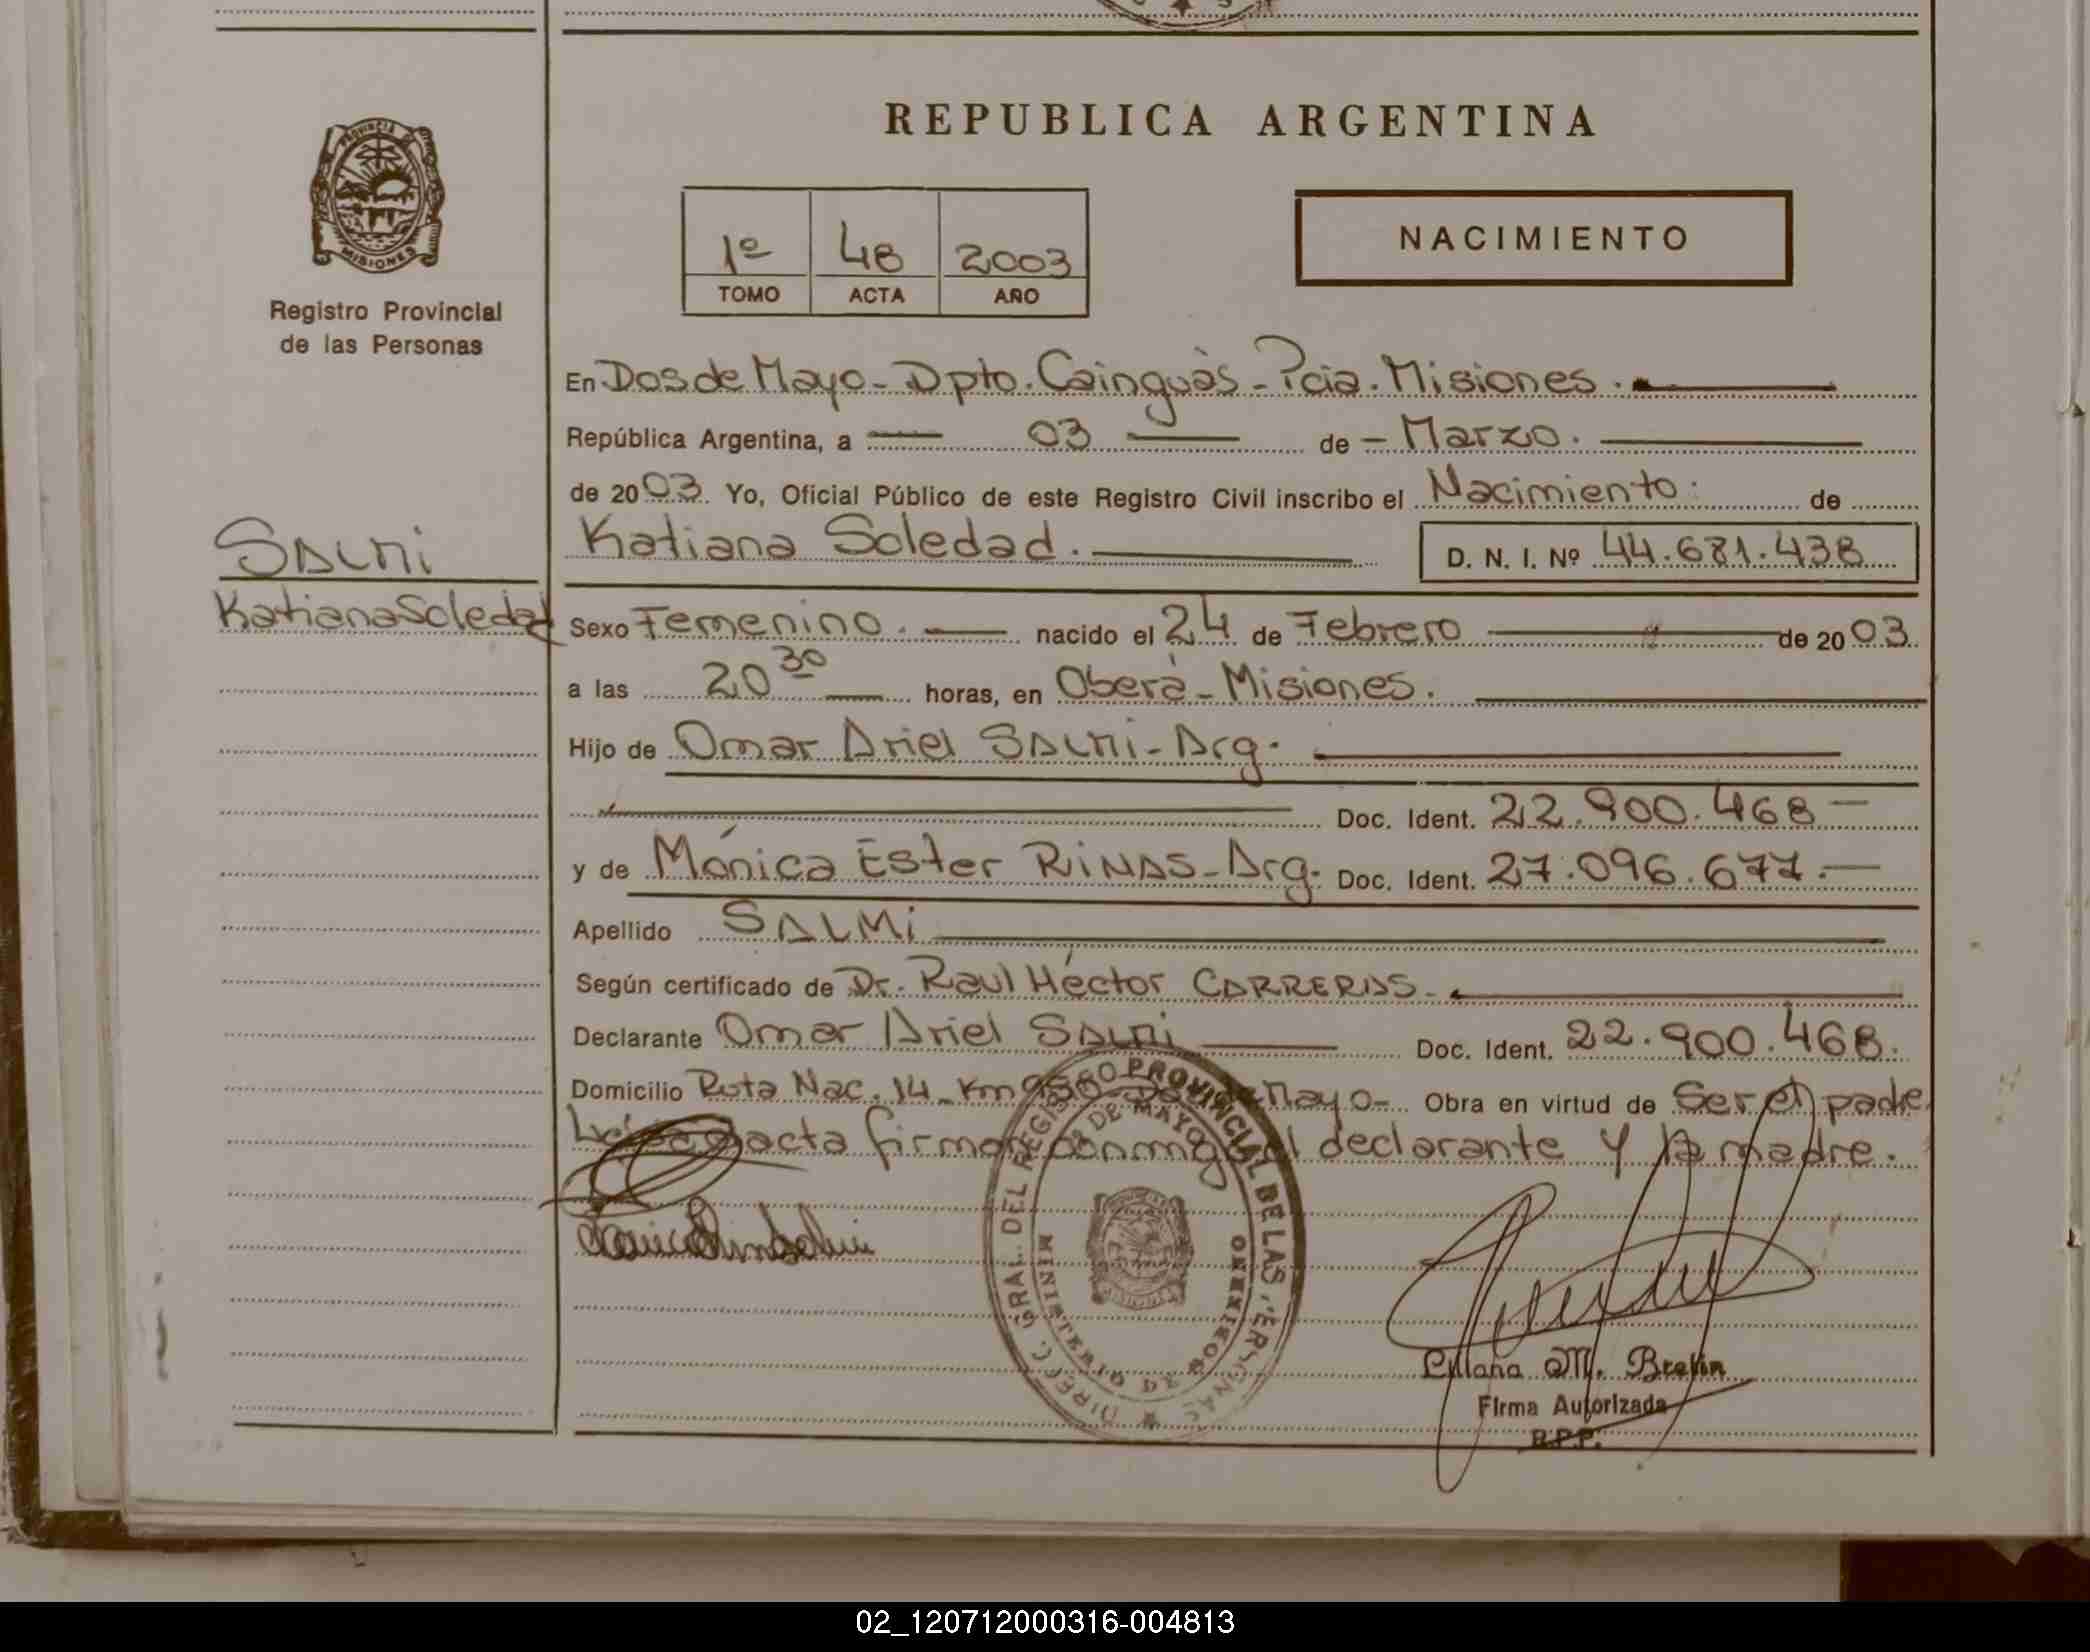 REPUBLICA ARGENTINA
PROVINCIA DE MISIONES
Registro Provincial
de las Personas
1º 48 2003
TOMO ACTA AÑO
NACIMIENTO
En Dos de Mayo - Dpto. Cainguàs - Pcia. Misiones.
República Argentina, a 03 de Marzo.
de 2003. Yo, Oficial Público de este Registro Civil inscribo el Nacimiento: de
Katiana Soledad. D. N. I. Nº 44.681.438
SALMi
Katiana Soledad
Sexo Femenino. nacido el 24 de Febrero de 2003.
a las 20 30 horas, en Oberá - Misiones.
Hijo de Omar Ariel SALMi - Arg.
Doc. Ident. 22.900.468
y de Mónica Ester RiNAS - Arg. Doc. Ident. 27.096.677.
Apellido SALMi
Según certificado de Dr. Raul Héctor CARRERAS.
Declarante Omar Ariel SALMi Doc. Ident. 22.900.468.
Domicilio Ruta Nac. 14 - Km de Mayo - Obra en virtud de Ser el padre
acta firman conmigo el declarante y la madre.
DIREC. GRAL. DEL REGISTRO PROVINCIAL DE LAS PERSONAS
DE MAYO
MINISTERIO DE GOBIERNO
Liliana M. Brelin
Firma Autorizada
R.P.P.
02_120712000316-004813